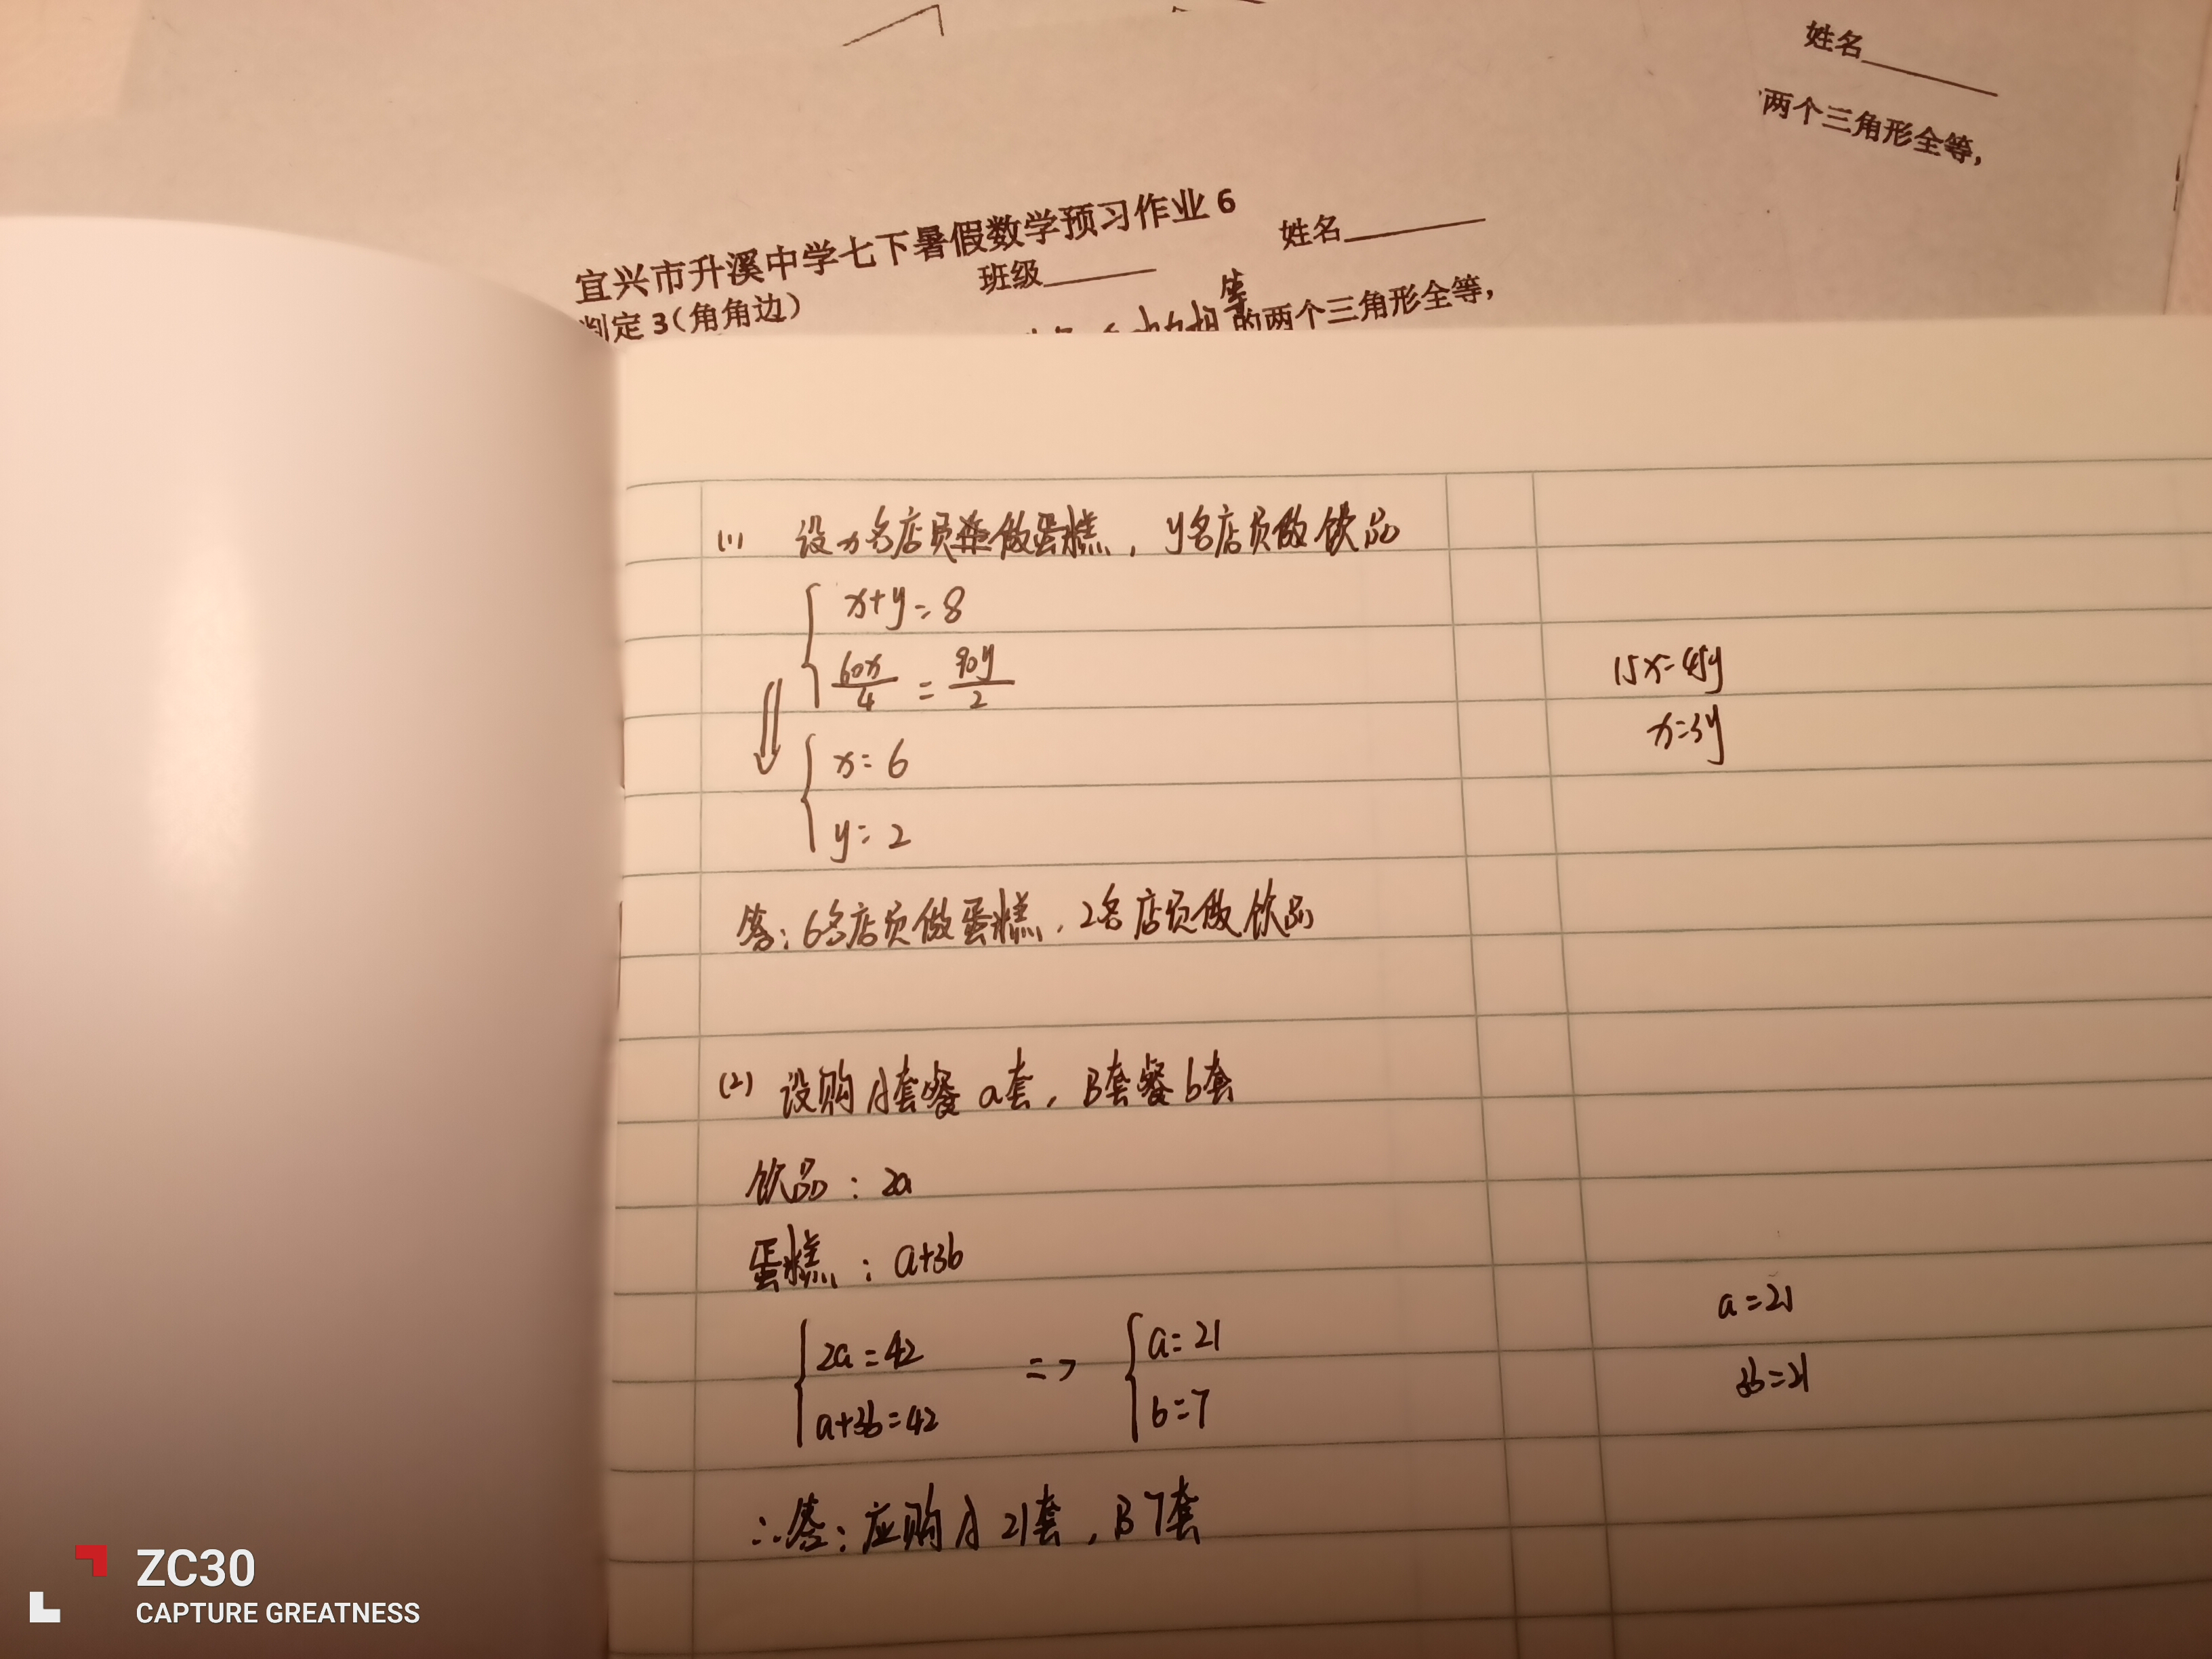 姓名
两个三角形全等,
宜兴市升溪中学七下暑假数学预习作业 6
班级
姓名
判定 3(角角边)
等
的两个三角形全等,
(1) 设x名店员做蛋糕, y名店员做饮品
x+y=8
60x/4 = 90y/2
15x=45y
x=3y
x=6
y=2
答: 6名店员做蛋糕, 2名店员做饮品
(2) 设购A套餐a套, B套餐b套
饮品: 2a
蛋糕: a+3b
2a=42 => a=21
a+3b=42 b=7
a=21
3b=21
∴答: 应购A 21套, B 7套
ZC30
CAPTURE GREATNESS